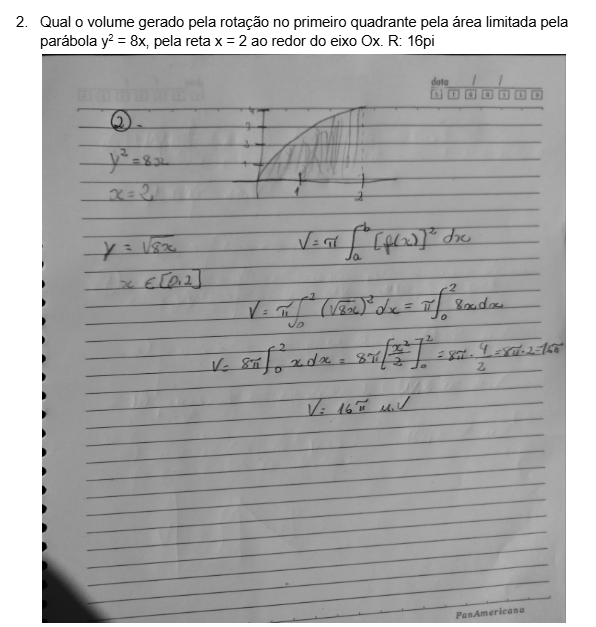 2. Qual o volume gerado pela rotação no primeiro quadrante pela área limitada pela
parábola y² = 8x, pela reta x = 2 ao redor do eixo Ox. R: 16pi
data / /
②.
4
1
1 2
y² = 8x
x = 2
y = √8x
x ∈ [0,2]
V = π ∫ₐᵇ [f(x)]² dx
V = π ∫₀² (√8x)² dx = π ∫₀² 8x dx
V = 8π ∫₀² x dx = 8π [x²/2]₀² = 8π · 4/2 = 8π · 2 = 16π
V = 16π u.V
PanAmericana